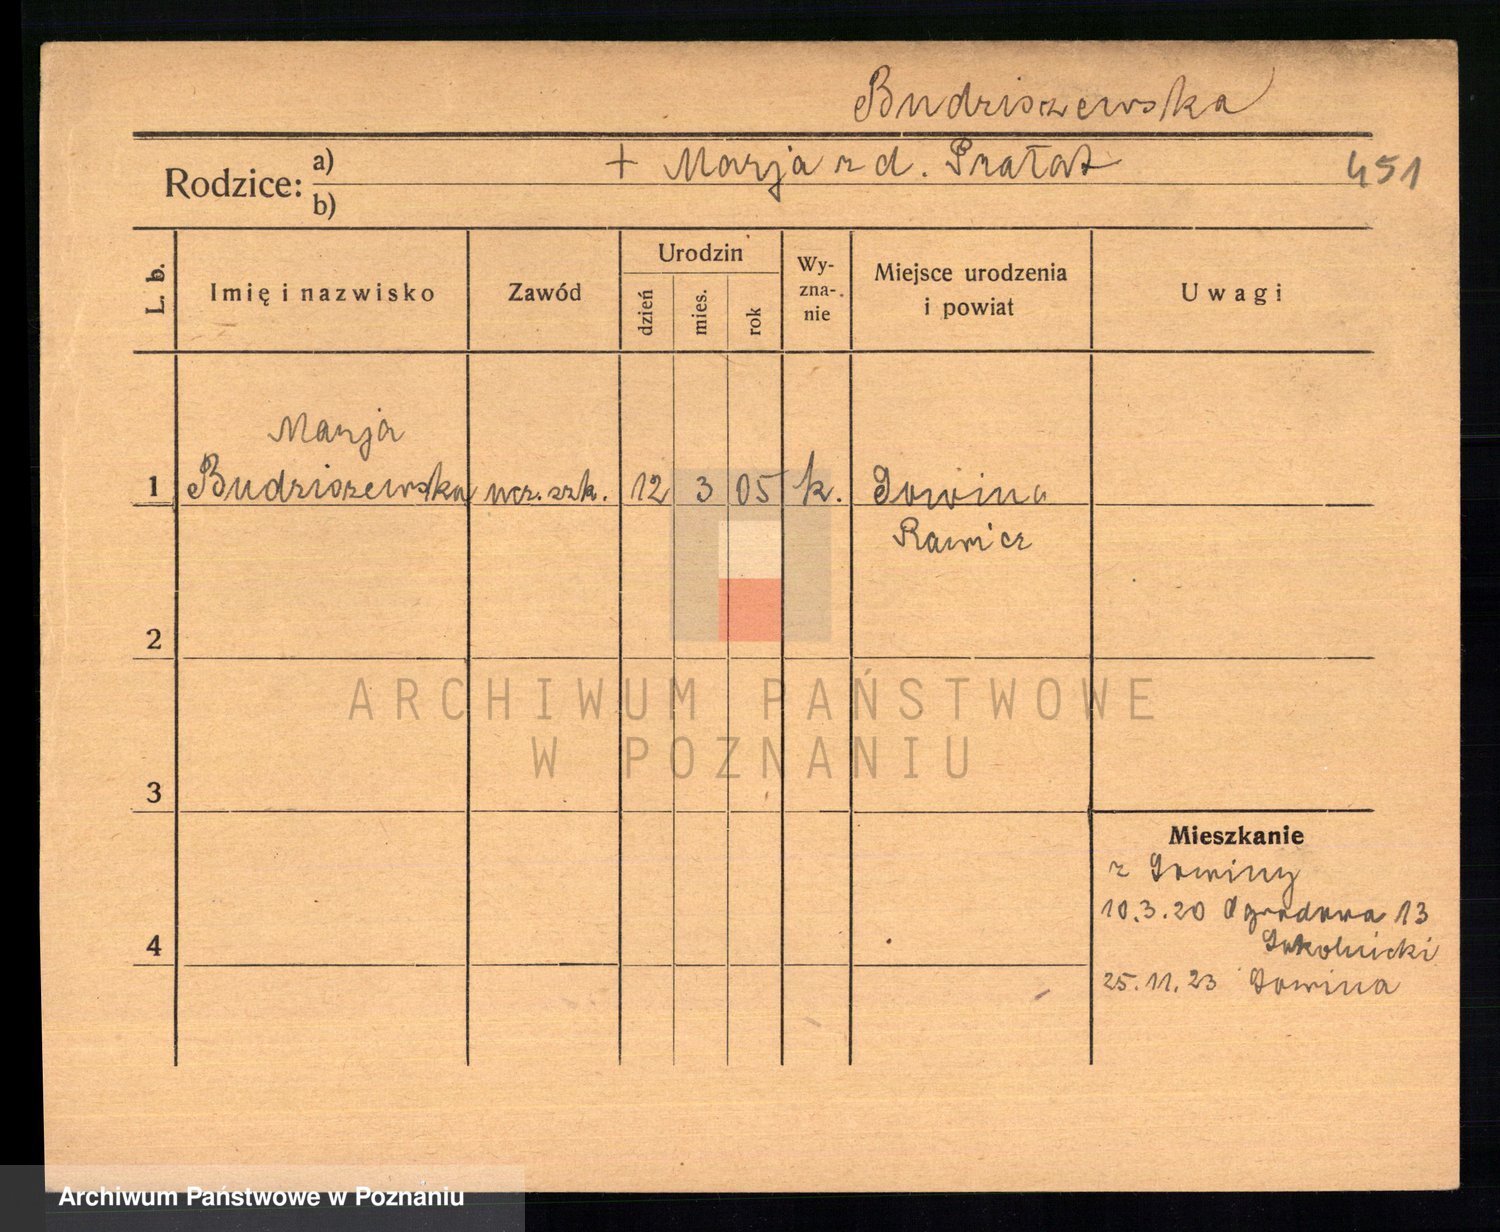 Budziszewska
Rodzice: a) + Marja z d. Prałat
b)
451
L. b.
Imię i nazwisko
Zawód
Urodzin
dzień
mies.
rok
Wy-
zna-
nie
Miejsce urodzenia
i powiat
Uwagi
Marja
1 Budziszewska ucz. szk. 12 3 05 k. Gowina
Rawicz
2
ARCHIWUM PAŃSTWOWE
W POZNANIU
3
Mieszkanie
z Gowiny
10.3.20 Ogrodowa 13
Sokolnicki
4
25.11.23 Gowina
Archiwum Państwowe w Poznaniu